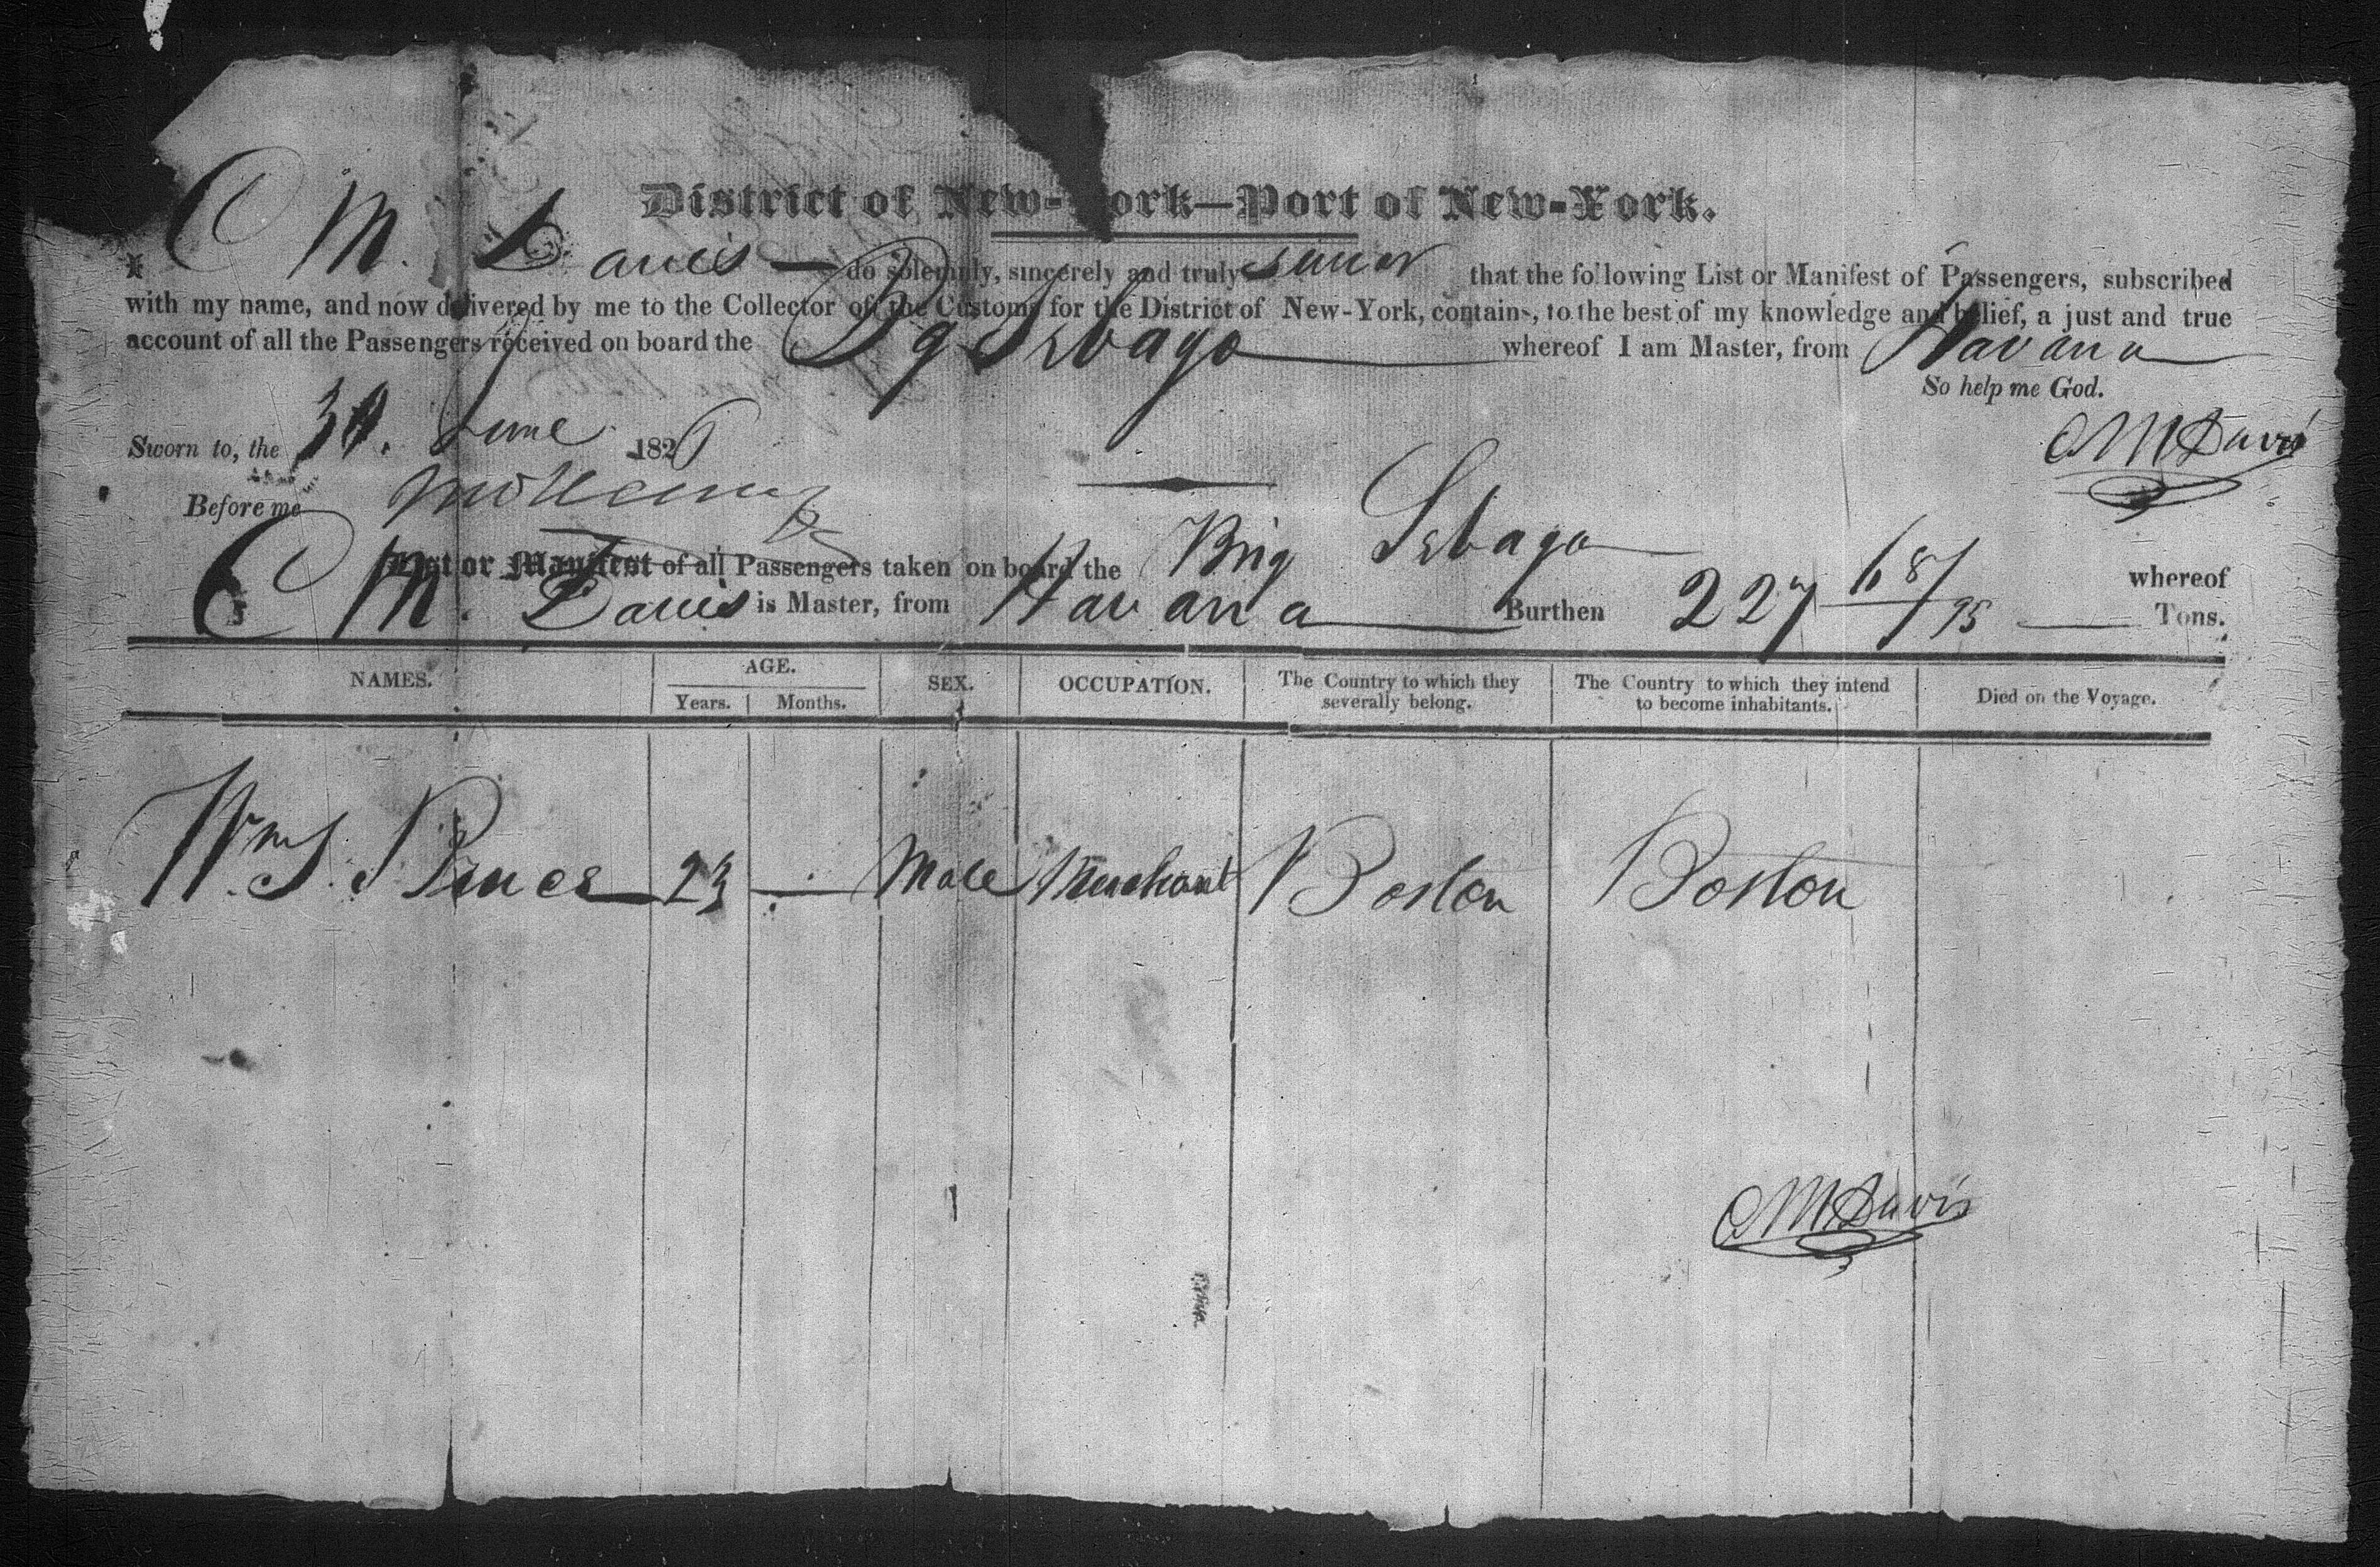 District of New- ork—Port of New-York.
I C M. Davis — do solemnly, sincerely and truly swear that the following List or Manifest of Passengers, subscribed
with my name, and now delivered by me to the Collector of the Customs for the District of New-York, contains, to the best of my knowledge and belief, a just and true
account of all the Passengers received on board the Bg Sebago whereof I am Master, from Havana
So help me God.
Sworn to, the 30. June 1826
C M Davis
Before me
List or Manifest of all Passengers taken on board the Brig Sebago whereof
C M. Davis is Master, from Havana Burthen 227 68/95 Tons.
NAMES. AGE. SEX. OCCUPATION. The Country to which they severally belong. The Country to which they intend to become inhabitants. Died on the Voyage.
Years. Months.
Wm S. Prince 23 — Male Merchant Boston Boston
C M Davis